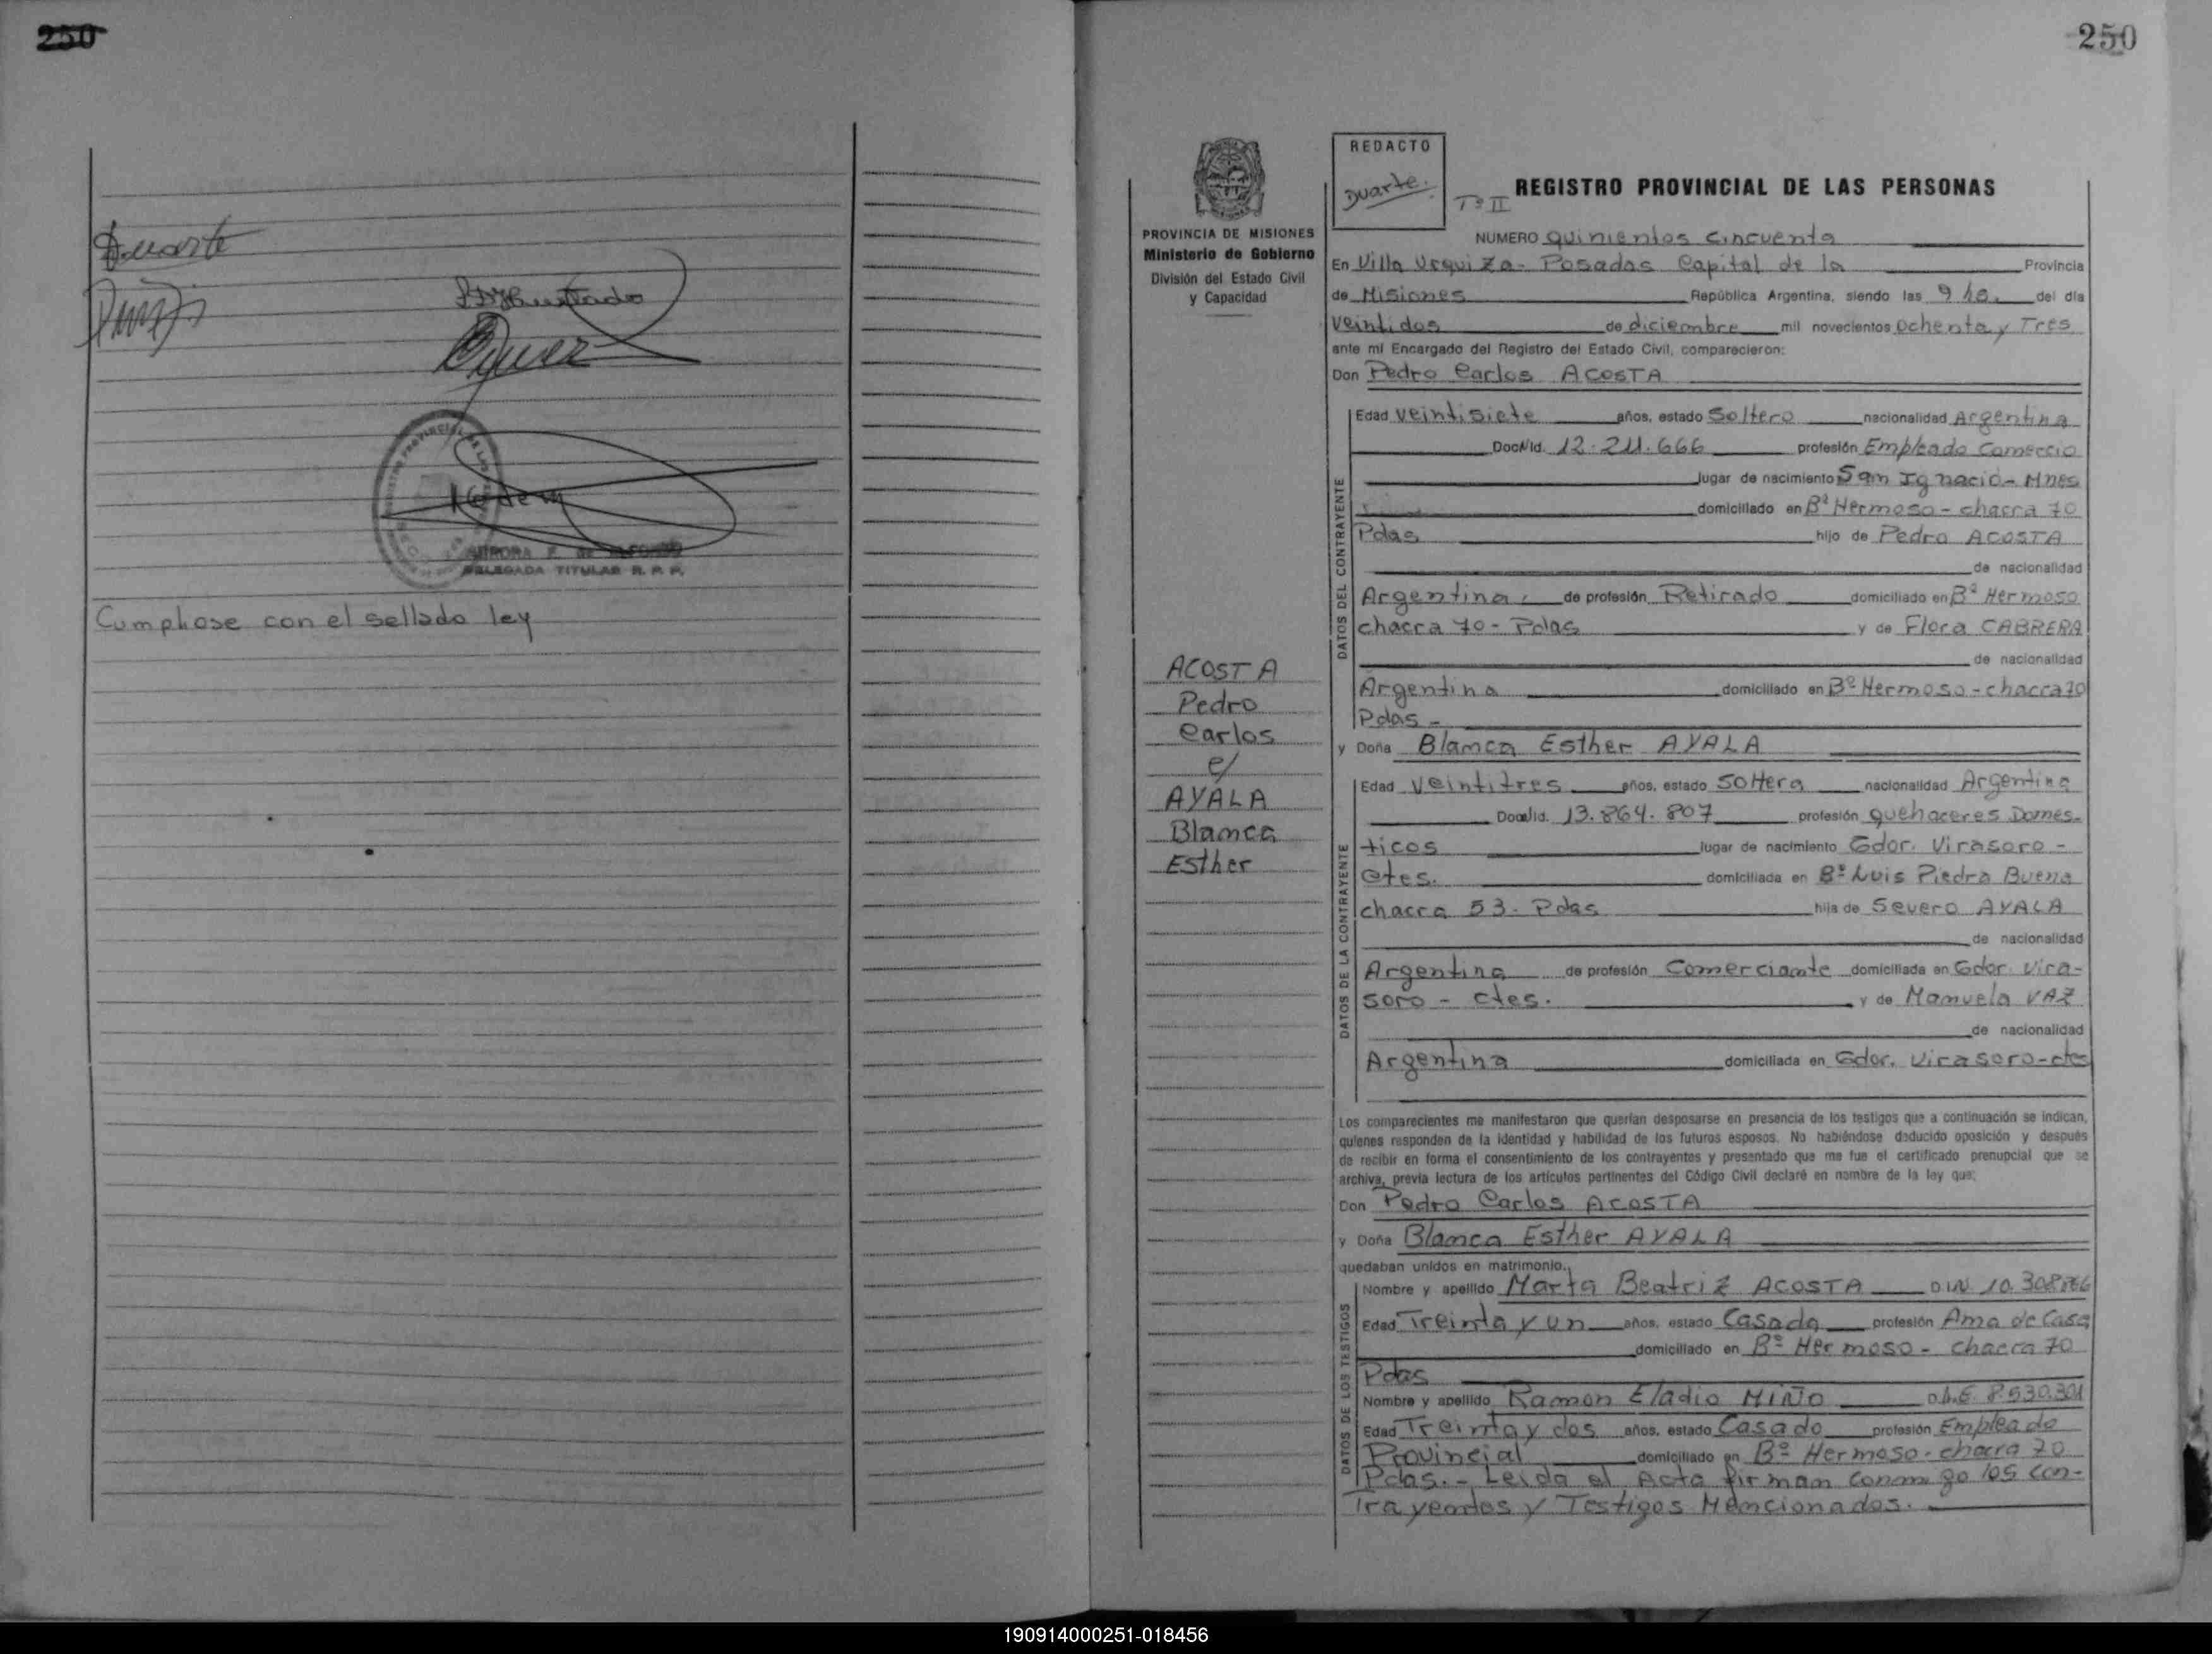 250
Duarte
Cumpliose con el sellado ley
250
PROVINCIA DE MISIONES
Ministerio de Gobierno
División del Estado Civil
y Capacidad
ACOSTA
Pedro
Carlos
c/
AYALA
Blanca
Esther
REDACTO
Duarte.
Tº II
REGISTRO PROVINCIAL DE LAS PERSONAS
NUMERO quinientos cincuenta
En Villa Urquiza - Posadas Capital de la Provincia
de Misiones República Argentina, siendo las 9 hs. del día
Veintidos de diciembre mil novecientos ochenta y Tres
ante mí Encargado del Registro del Estado Civil, comparecieron:
Don Pedro Carlos ACOSTA
DATOS DEL CONTRAYENTE
Edad veintisiete años, estado Soltero nacionalidad Argentina
Doc. Id. 12.211.666 profesión Empleado Comercio
lugar de nacimiento San Ignacio - Mnes
domiciliado en Bº Hermoso - chacra 70
Pdas hijo de Pedro ACOSTA
de nacionalidad
Argentina, de profesión Retirado domiciliado en Bº Hermoso
chacra 70 - Pdas y de Flora CABRERA
de nacionalidad
Argentina domiciliado en Bº Hermoso - chacra 70
Pdas -
y Doña Blanca Esther AYALA
DATOS DE LA CONTRAYENTE
Edad Veintitres años, estado Soltera nacionalidad Argentina
Doc. Id. 13.864.807 profesión quehaceres Domes-
ticos lugar de nacimiento Gdor. Virasoro -
Ctes. domiciliada en Bº Luis Piedra Buena
chacra 53. Pdas hija de Severo AYALA
de nacionalidad
Argentina de profesión Comerciante domiciliada en Gdor. Vira-
soro - Ctes. y de Manuela VAZ
de nacionalidad
Argentina domiciliada en Gdor. Virasoro - ctes
Los comparecientes me manifestaron que querían desposarse en presencia de los testigos que a continuación se indican,
quienes responden de la identidad y habilidad de los futuros esposos. No habiéndose deducido oposición y después
de recibir en forma el consentimiento de los contrayentes y presentado que me fue el certificado prenupcial que se
archiva, previa lectura de los artículos pertinentes del Código Civil declaré en nombre de la ley que:
Don Pedro Carlos ACOSTA
y Doña Blanca Esther AYALA
quedaban unidos en matrimonio.
DATOS DE LOS TESTIGOS
Nombre y apellido Marta Beatriz ACOSTA
Edad Treinta y un años, estado Casada profesión Ama de Casa
domiciliado en Bº Hermoso - chacra 70
Pdas
Nombre y apellido Ramon Eladio MIÑO 8.530.301
Edad Treinta y dos años, estado Casado profesión Empleado
Provincial domiciliado en Bº Hermoso - chacra 70
Pdas. - Leida el Acta firman conmigo los con-
Trayentes y Testigos Mencionados. -
190914000251-018456